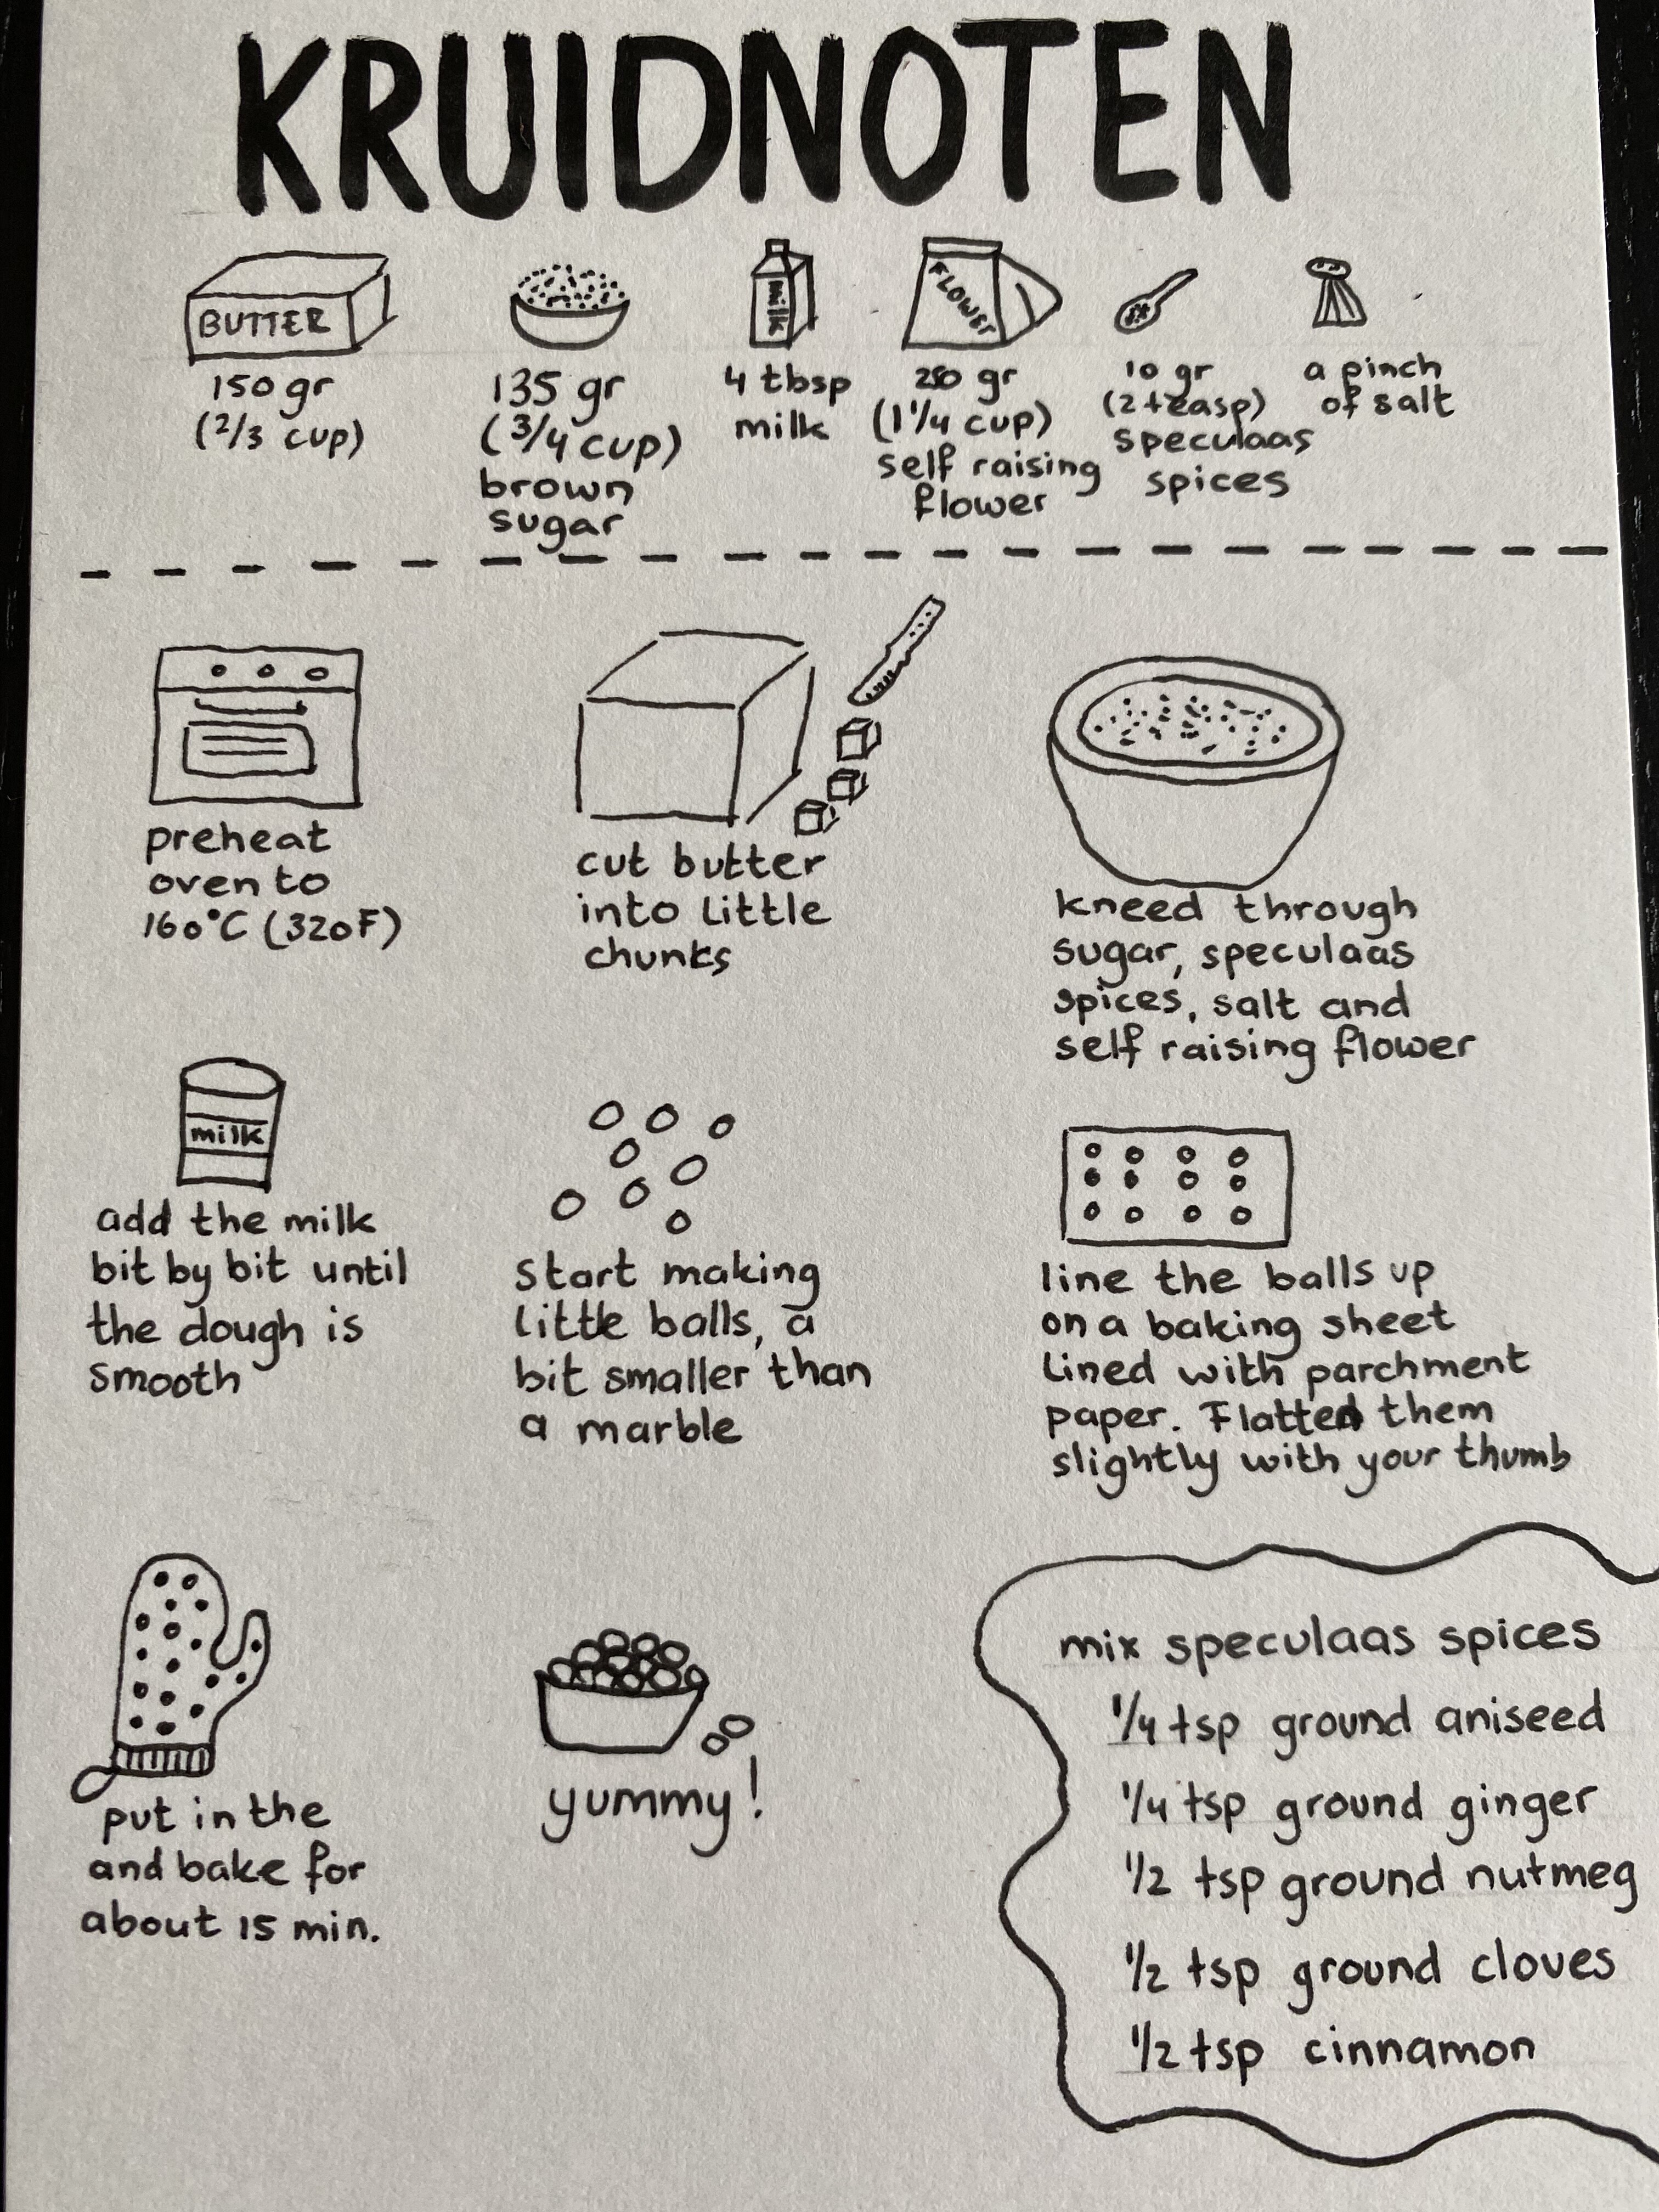 KRUIDNOTEN
BUTTER
150 gr
(2/3 cup)
135 gr
(3/4 cup)
brown
sugar
milk
4 tbsp
milk
FLOWER
250 gr
(1 1/4 cup)
self raising
flower
10 gr
(2 teasp)
speculaas
spices
a pinch
of salt
preheat
oven to
160°C (320F)
cut butter
into little
chunks
kneed through
sugar, speculaas
spices, salt and
self raising flower
milk
add the milk
bit by bit until
the dough is
smooth
start making
little balls, a
bit smaller than
a marble
line the balls up
on a baking sheet
lined with parchment
paper. Flatten them
slightly with your thumb
put in the
and bake for
about 15 min.
yummy!
mix speculaas spices
1/4 tsp ground aniseed
1/4 tsp ground ginger
1/2 tsp ground nutmeg
1/2 tsp ground cloves
1/2 tsp cinnamon